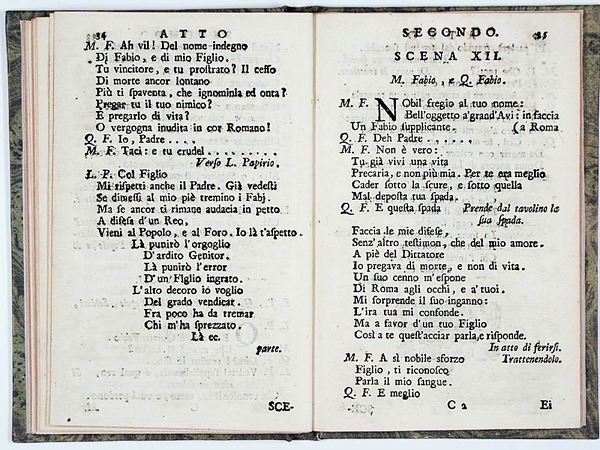 34 ATTO
M. F. Ah vil! Del nome indegno
Di Fabio, e di mio Figlio.
Tu vincitore, e tu prostrato? Il ceffo
Di morte ancor lontano
Più ti spaventa, che ignominia ed onta?
Pregar tu il tuo nimico?
E pregarlo di vita?
O vergogna inudita in cor Romano!
Q. F. Io, Padre....
M. F. Taci: e tu crudel.........
Verso L. Papirio.
L. P. Col Figlio
Mi rispetti anche il Padre. Già vedesti
Se dimessi al mio piè tremino i Fabj.
Ma se ancor ti rimane audacia in petto
A difesa d'un Reo,
Vieni al Popolo, e al Foro. Io là t'aspetto.
Là punirò l'orgoglio
D'ardito Genitor.
Là punirò l'error
D'un Figlio ingrato.
L'alto decoro io voglio
Del grado vendicat.
Fra poco ha da tremar
Chi m'ha sprezzato.
Là ec.
parte.
SCE-
SECONDO. 35
SCENA XII.
M. Fabio, e Q. Fabio.
M. F. NObil fregio al tuo nome:
Bell'oggetto a'grand'Avi: in faccia
Un Fabio supplicante. (a Roma
Q. F. Deh Padre.....
M. F. Non è vero:
Tu già vivi una vita
Precaria, e non più mia. Per te era meglio
Cader sotto la scure, e sotto quella
Mal deposta tua spada.
Q. F. E questa spada Prende dal tavolino la
sua spada.
Faccia le mie difese,
Senz'altro testimon, che del mio amore.
A piè del Dittatore
Io pregava di morte, e non di vita.
Un suo cenno m'espone
Di Roma agli occhi, e a' tuoi.
Mi sorprende il suo inganno:
L'ira tua mi confonde.
Ma a favor d'un tuo Figlio
Così a te quest'acciar parla, e risponde.
In atto di ferirsi.
M. F. A sì nobile sforzo Trattenendolo.
Figlio, ti riconosco
Parla il mio sangue.
Q. F. E meglio
C 2 Ei